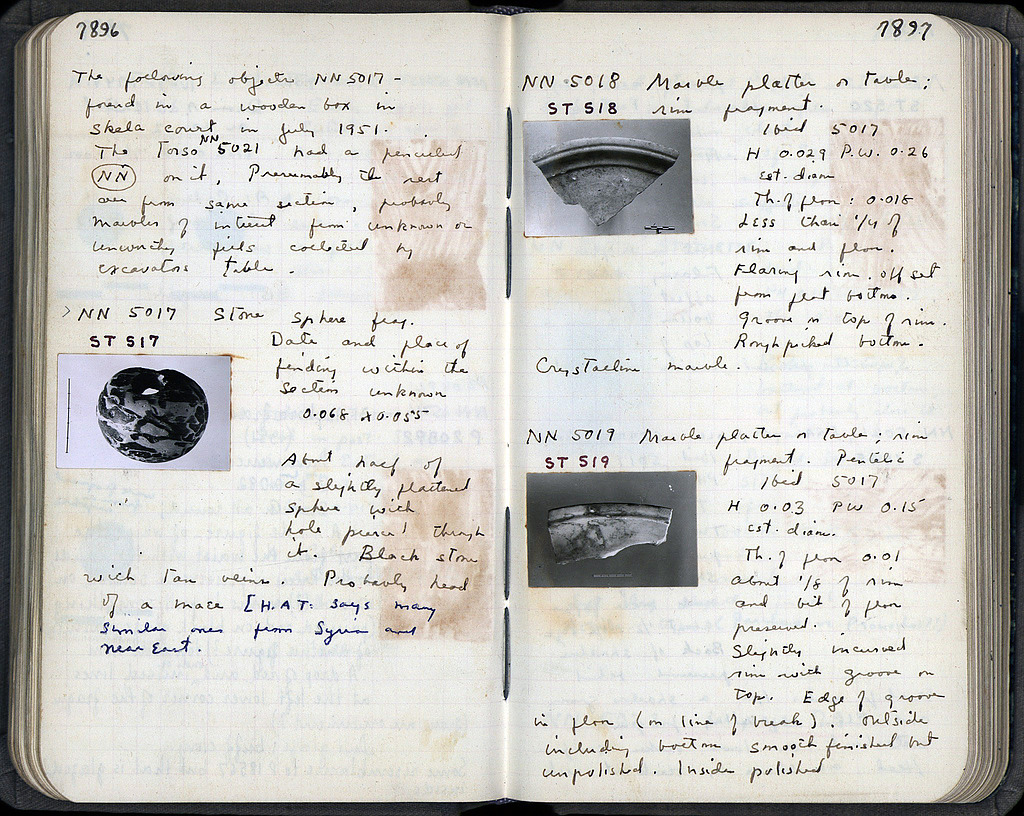 7896
The following objects NN 5017 -
found in a wooden box in
Skela court in July 1951.
The Torso NN 5021 had a penciled
NN on it, Presumably the rest
are from same section, probably
marbles of interest from unknown or
unworthy fills collected by
excavators table.
> NN 5017 Stone Sphere frag.
ST 517
Date and place of
finding within the
Section unknown
0.068 x 0.055
About half of
a slightly flattened
sphere with
hole pierced through
it. Black stone
with tan veins. Probably head
of a mace [H.A.T. says many
similar ones from Syria and
near East.
7897
NN 5018 Marble platter or table;
ST 518 rim fragment.
Ibid 5017
H 0.029 P.W. 0.26
est. diam
Th. of floor: 0.018
Less than 1/4 of
rim and floor.
Flaring rim, off set
from flat bottom.
Groove on top of rim.
Rough picked bottom.
Crystalline marble.
NN 5019 Marble platter or table; rim
ST 519 fragment. Pentelic
Ibid 5017
H 0.03 PW 0.15
est. diam.
Th. of floor 0.01
About 1/8 of rim
and bit of floor
preserved.
Slightly incurved
rim with groove on
top. Edge of groove
in floor (on line of break). Outside
including bottom smooth finished but
unpolished. Inside polished